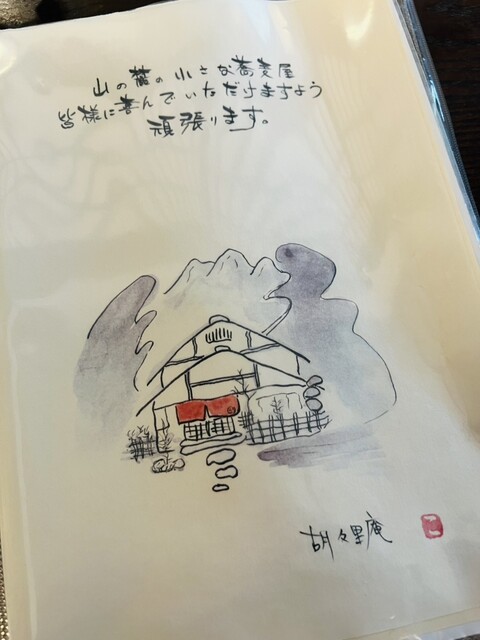 山の麓の小さな蕎麦屋
皆様に喜んでいただけますよう
頑張ります。
胡々里庵
こ